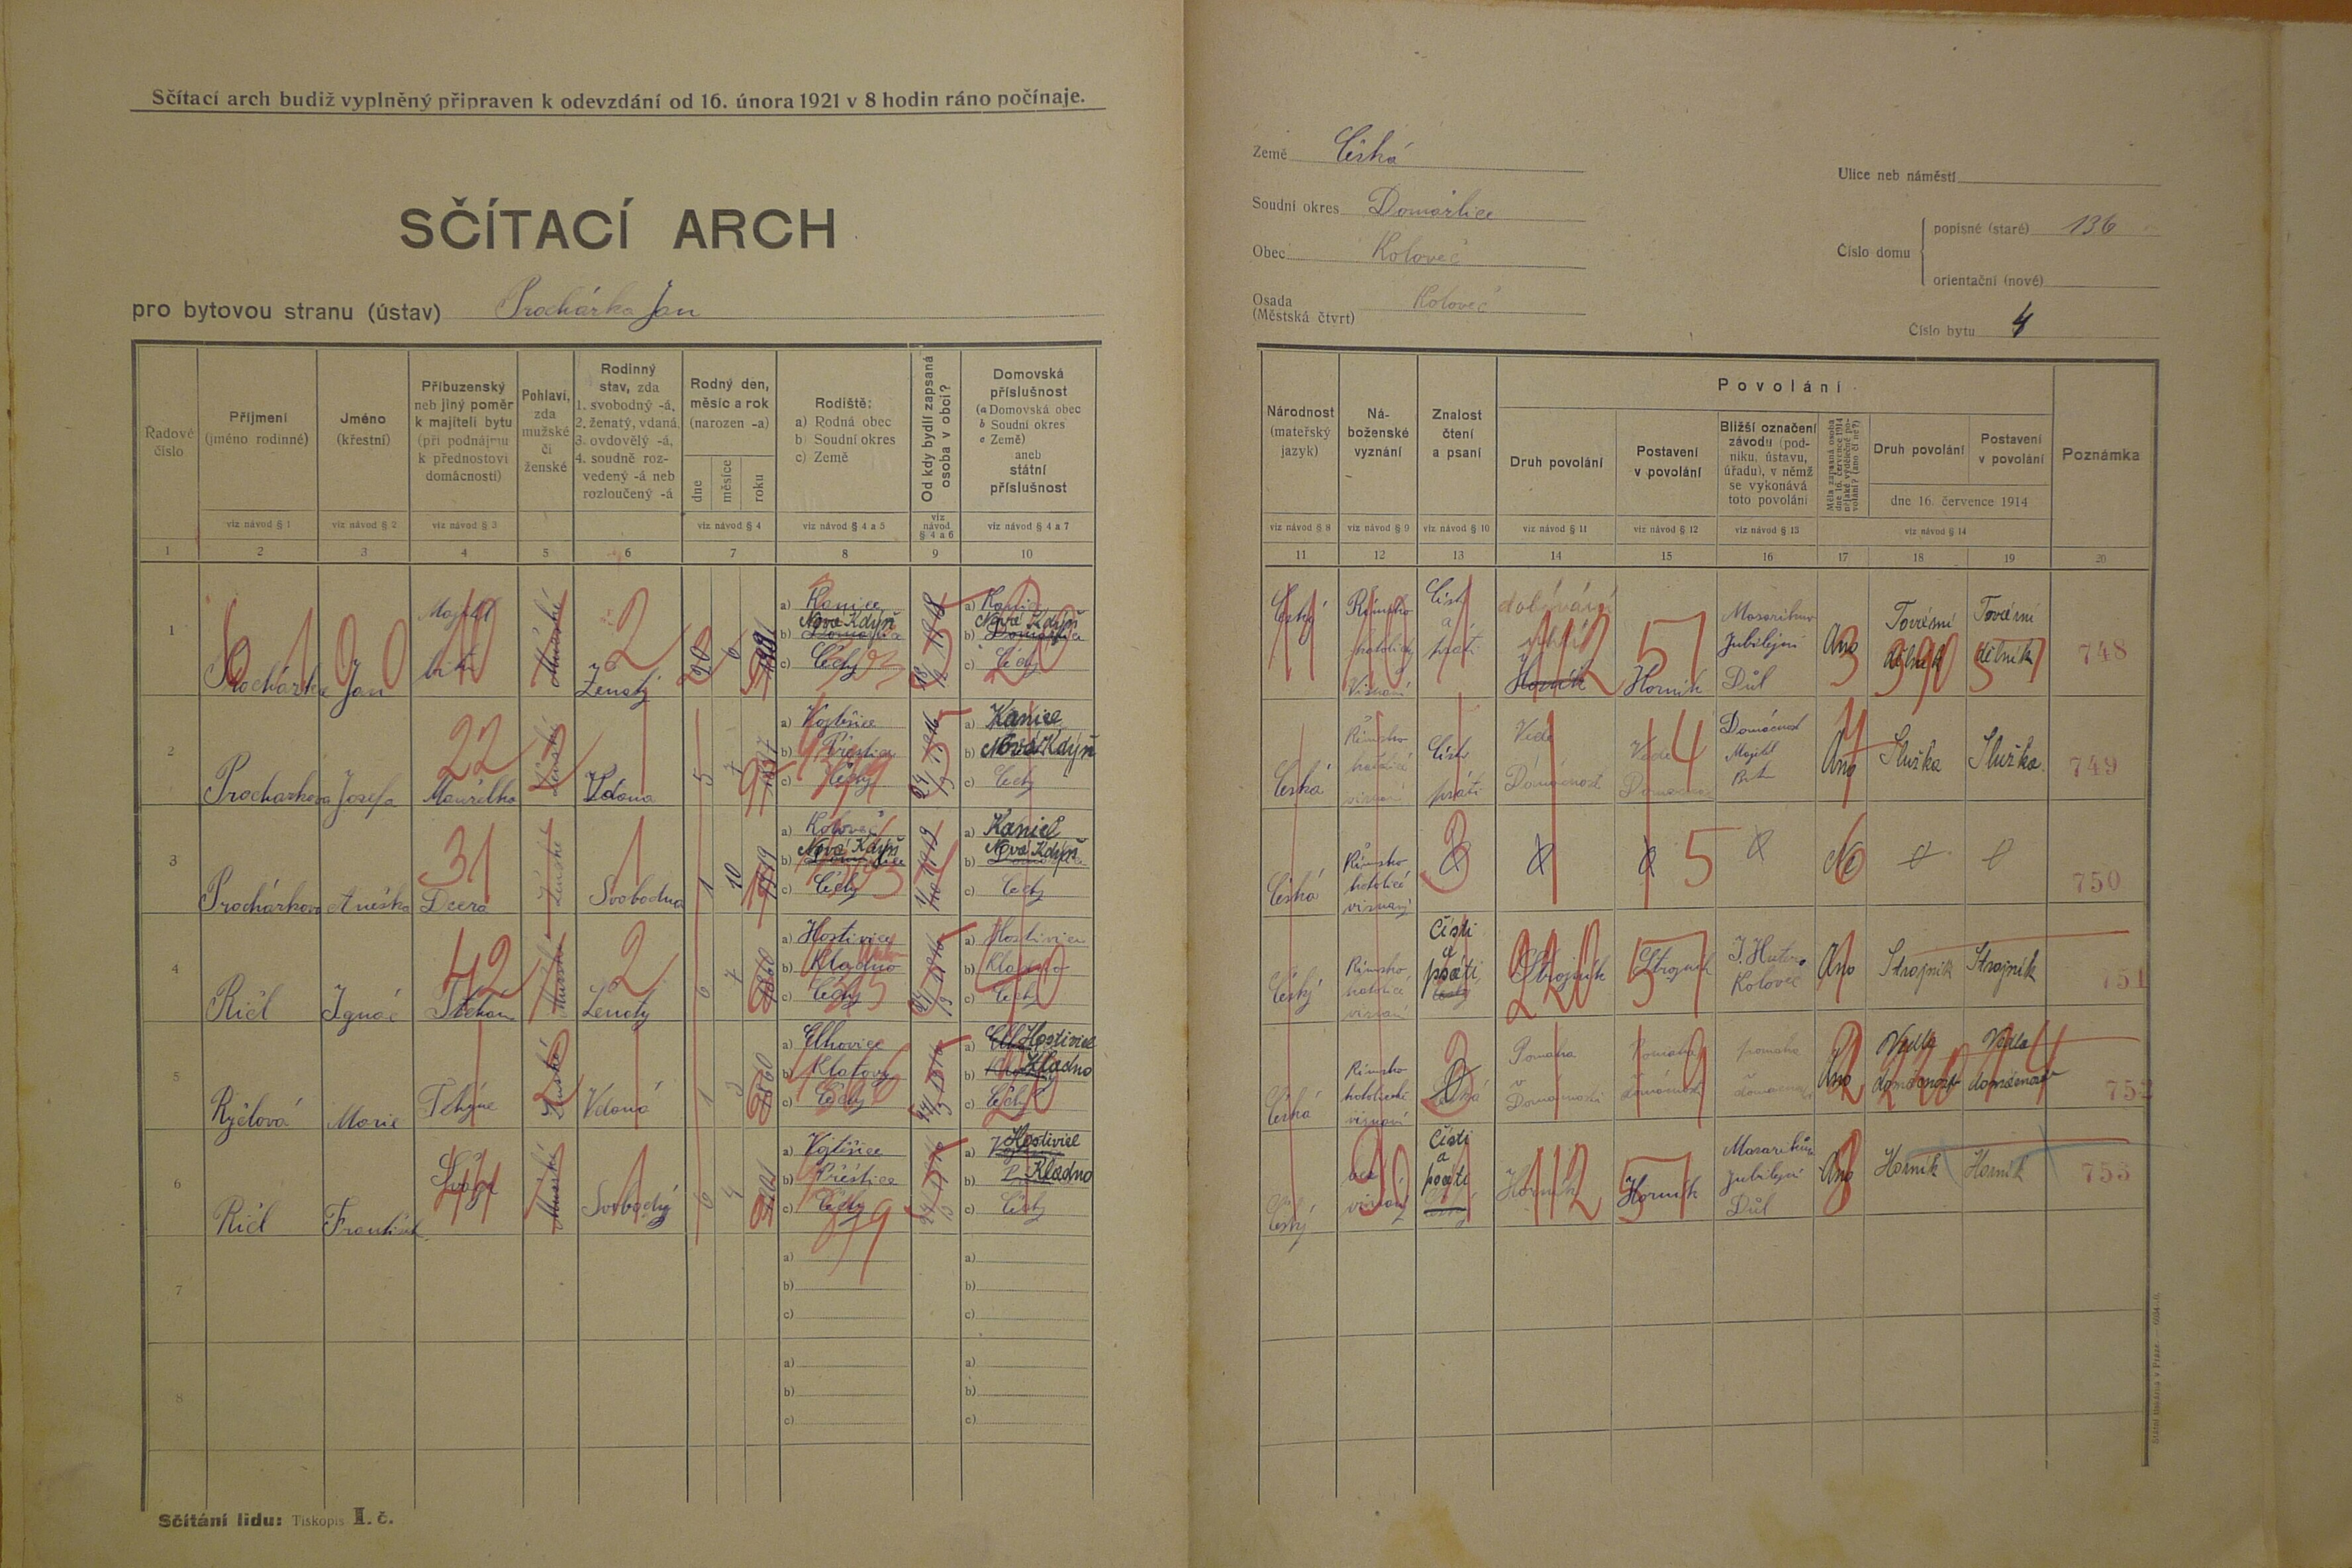 Sčítací arch budiž vyplněný připraven k odevzdání od 16. února 1921 v 8 hodin ráno počínaje.
SČÍTACÍ ARCH
pro bytovou stranu (ústav) Procházka Jan
Řadové číslo
Příjmení (jméno rodinné)
Jméno (křestní)
Příbuzenský neb jiný poměr k majiteli bytu (při podnájmu k přednostovi domácnosti)
Pohlaví, zda mužské či ženské
Rodinný stav, zda 1. svobodný -á, 2. ženatý, vdaná, 3. ovdovělý -á, 4. soudně rozvedený -á neb rozloučený -á
Rodný den, měsíc a rok (narozen -a)
dne měsíce roku
Rodiště: a) Rodná obec b) Soudní okres c) Země
Od kdy bydlí zapsaná osoba v obci?
Domovská příslušnost (a Domovská obec b Soudní okres c Země) aneb státní příslušnost
viz návod § 1 viz návod § 2 viz návod § 3 viz návod § 4 viz návod § 4 a 5 viz návod § 4 a 6 viz návod § 4 a 7
1 2 3 4 5 6 7 8 9 10
1 Procházka Jan Mužské Ženatý 20 6
a) Kanice
b) Nová Kdyň
c) Čechy
a) Kanice
b) Nová Kdyň
c) Čechy
2 Procházková Josefa Manželka Ženské Vdaná 5 7
b) Přeštice
c) Čechy
a) Kanice
b) Nová Kdyň
c) Čechy
3 Procházková Anežka Dcera Ženské Svobodna 1 10 1919
a) Koloveč
b) Nová Kdyň
c) Čechy
a) Kanice
b) Nová Kdyň
c) Čechy
4 Ričl Ignác Mužské Ženatý 6 7 1860
a) Hostivice
b) Kladno
c) Čechy
a) Hostivice
b) Kladno
c) Čechy
5 Ryčlová Marie Tchýne Ženské Vdaná 1 3 1860
a) Elhovice
b) Klatovy
c) Čechy
a) Hostivice
b) Kladno
c) Čechy
6 Ričl František Mužské Svobodný 6 4 1901
b) Přeštice
c) Čechy
a) Hostivice
b) Kladno
c) Čechy
7
a)
b)
c)
a)
b)
c)
8
a)
b)
c)
a)
b)
c)
Sčítání lidu: Tiskopis I. č.
Země Česká
Soudní okres Domažlice
Obec Koloveč
Osada (Městská čtvrť) Koloveč
Ulice neb náměstí
Číslo domu
popisné (staré) 136
orientační (nové)
Číslo bytu 4
Národnost (mateřský jazyk)
Náboženské vyznání
Znalost čtení a psaní
Povolání
Druh povolání
Postavení v povolání
Bližší označení závodu (podniku, ústavu, úřadu), v němž se vykonává toto povolání
Měla zapsaná osoba dne 16. července 1914 nějaké výdělečné povolání? (ano či ne?)
Druh povolání
Postavení v povolání
dne 16. července 1914
Poznámka
viz návod § 8 viz návod § 9 viz návod § 10 viz návod § 11 viz návod § 12 viz návod § 13 viz návod § 14
11 12 13 14 15 16 17 18 19 20
Český Římsko 112 Horník 57 Horník Jubilejní Důl Ano Tovární dělník Tovární dělník 748
Česká Římsko Vede Domácnost Ano Služka Služka 749
Česká Římsko 3 5 Ne 750
Český Římsko Čísti a psáti Strojník Strojník Koloveč Ano Strojník Strojník 751
Česká Římsko Pomáhá v Domácnosti Ano Vedla domácnost Vedla domácnost 752
Český bez vyznání Čísti a psáti Horník 112 57 Horník Jubilejní Důl Ano Horník Horník 753